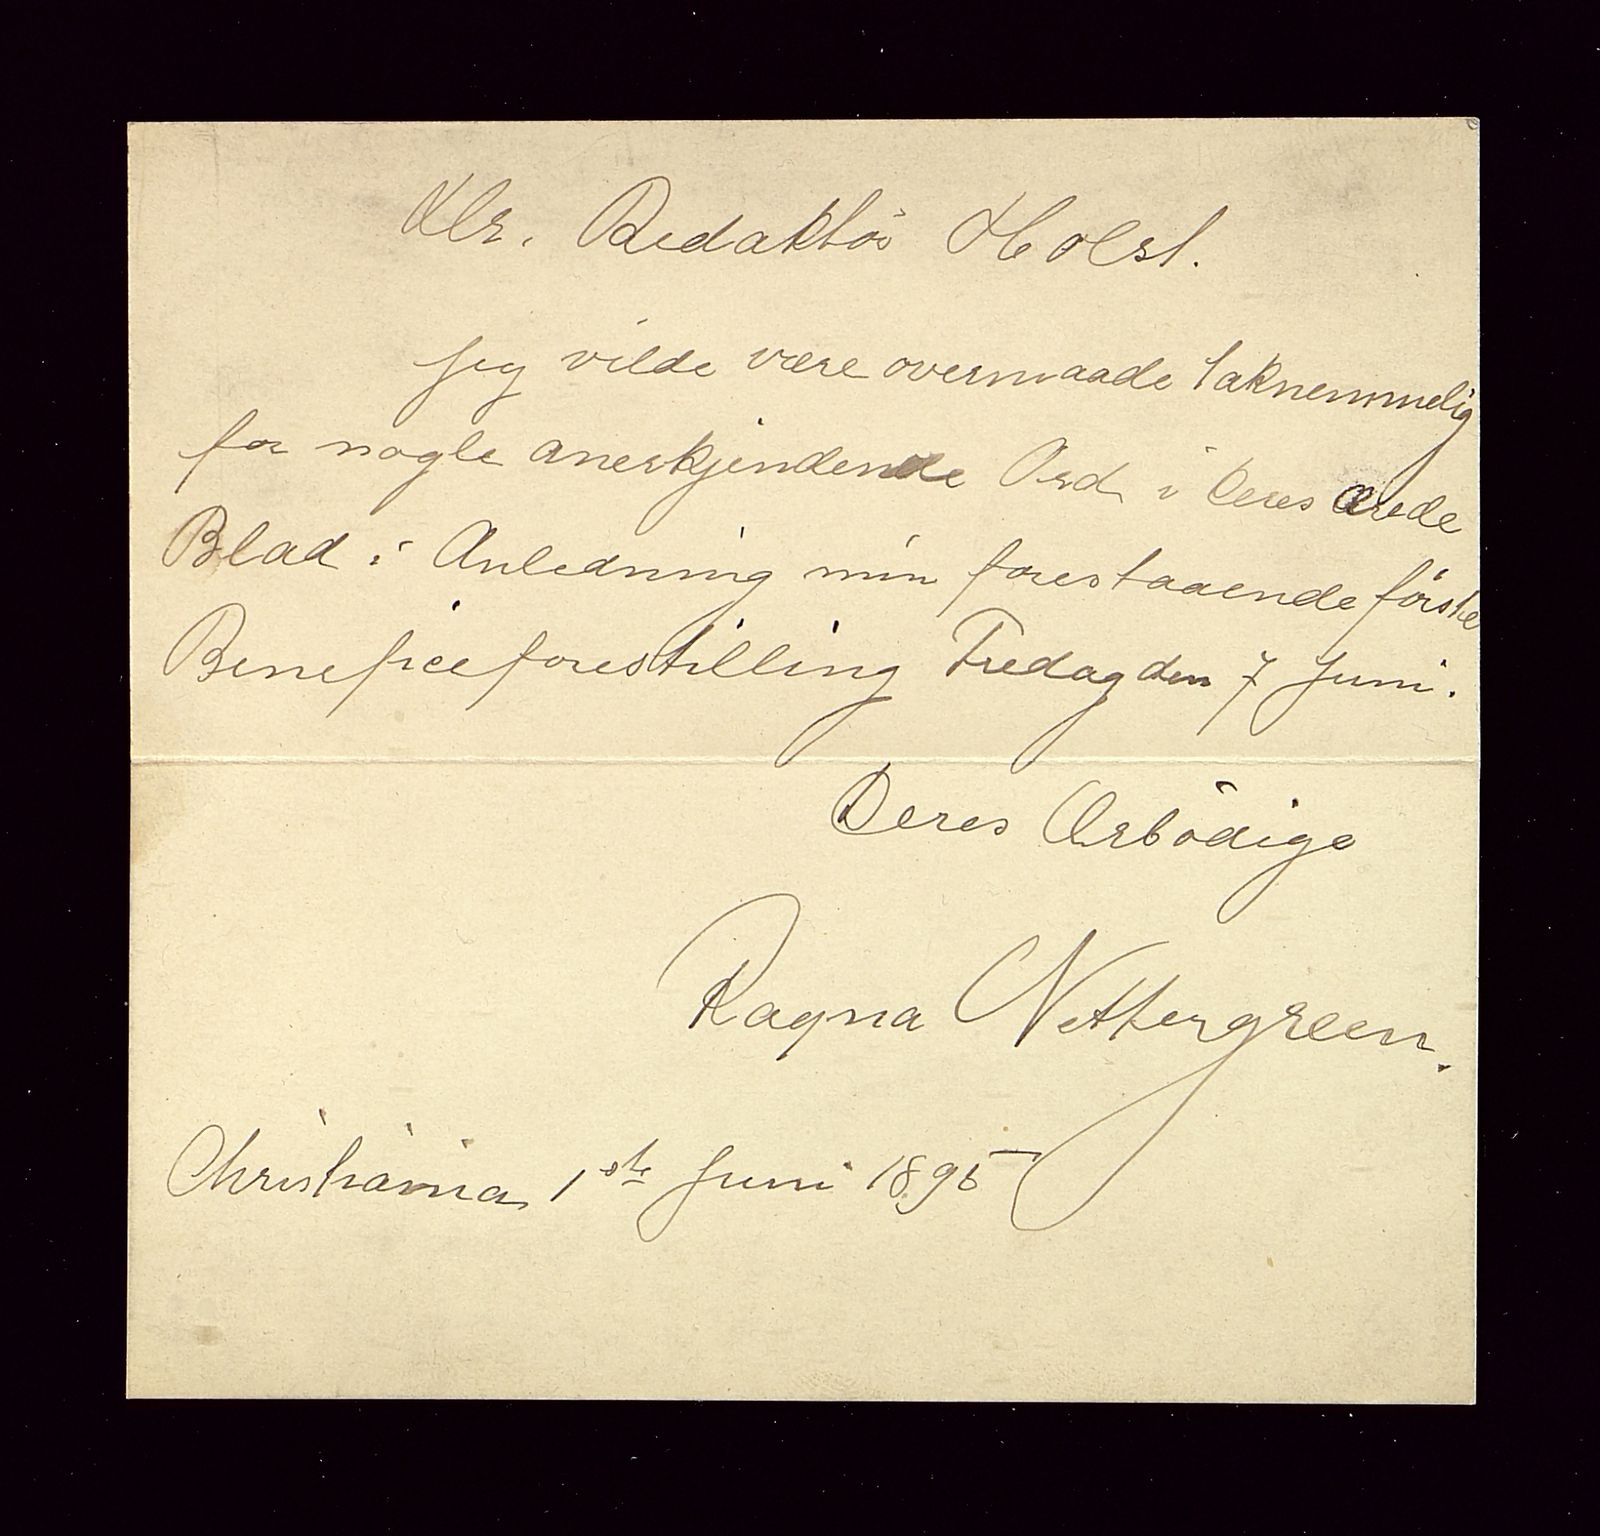 Hr. Redaktør Holst.
Jeg vilde være overmaade taknemmelig
for nogle anerkjendende Ord i Deres ærede
Blad i Anledning min forestaaende første
Beneficeforestilling Fredag den 7 Juni.
Deres Ærbødige
Ragna Wettergreen.
Christiania 1ste Juni 1895